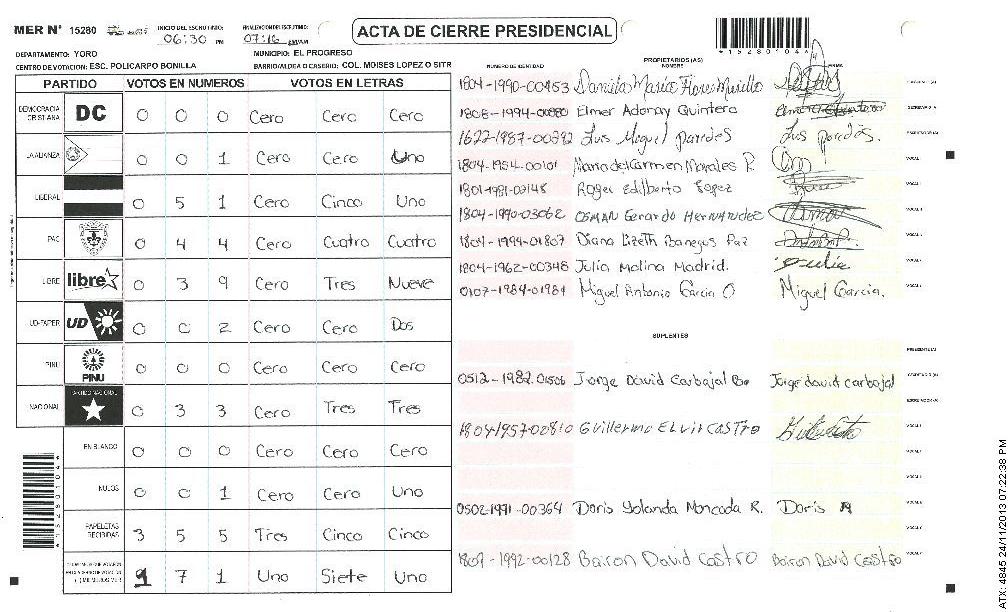 MER Nº 15280 INICIO DEL ESCRUTINIO: 06:30 PM FINALIZACION DEL ESCRUTINIO: 07:16
ACTA DE CIERRE PRESIDENCIAL
*15280104*
DEPARTAMENTO: YORO MUNICIPIO: EL PROGRESO
CENTRO DE VOTACION: ESC. POLICARPO BONILLA BARRIO/ALDEA O CASERIO: COL. MOISES LOPEZ O SITR
PARTIDO VOTOS EN NUMEROS VOTOS EN LETRAS
DEMOCRACIA CRISTIANA DC 0 0 0 Cero Cero Cero
LA ALIANZA 0 0 1 Cero Cero Uno
LIBERAL 0 5 1 Cero Cinco Uno
PAC 0 4 4 Cero Cuatro Cuatro
LIBRE libre 0 3 9 Cero Tres Nueve
UD-FAPER UD 0 0 2 Cero Cero Dos
PINU PINU 0 0 0 Cero Cero Cero
NACIONAL PARTIDO NACIONAL 0 3 3 Cero Tres Tres
EN BLANCO 0 0 0 Cero Cero Cero
NULOS 0 0 1 Cero Cero Uno
PAPELETAS RECIBIDAS 3 5 5 Tres Cinco Cinco
1 7 1 Uno Siete Uno
PROPIETARIOS (AS)
NUMERO DE IDENTIDAD NOMBRE FIRMA
1804-1990-00953 Daniela Maria Flores Murillo PRESIDENTE (A)
1808-1994-00880 Elmer Adonay Quintero SECRETARIO (A)
1622-1987-00392 Luis Miguel Paredes Luis Paredes.
1804-1954-00101 Maria del Carmen Morales R. VOCAL
1801-1981-02148 Roger Edilberto Lopez VOCAL
1804-1990-03062 OSMAN Gerardo Hernandez VOCAL
1804-1994-01807 Diana Lizeth Banegas Paz VOCAL
1804-1962-00348 Julia Molina Madrid. Julia VOCAL
0107-1984-01984 Miguel Antonio Garcia O Miguel Garcia. VOCAL
SUPLENTES
PRESIDENTE (A)
0512-1982-01506 Jorge David Carbajal Jorge david carbajal SECRETARIO (A)
1804-1957-02810 Guillermo ELvir CASTRO VOCAL
0502-1991-00364 Doris Yolanda Moncada R. Doris VOCAL
1807-1992-00128 Bairon David Castro Bairon David Castro VOCAL
ATX: 4845 24/11/2013 07:22:38 PM